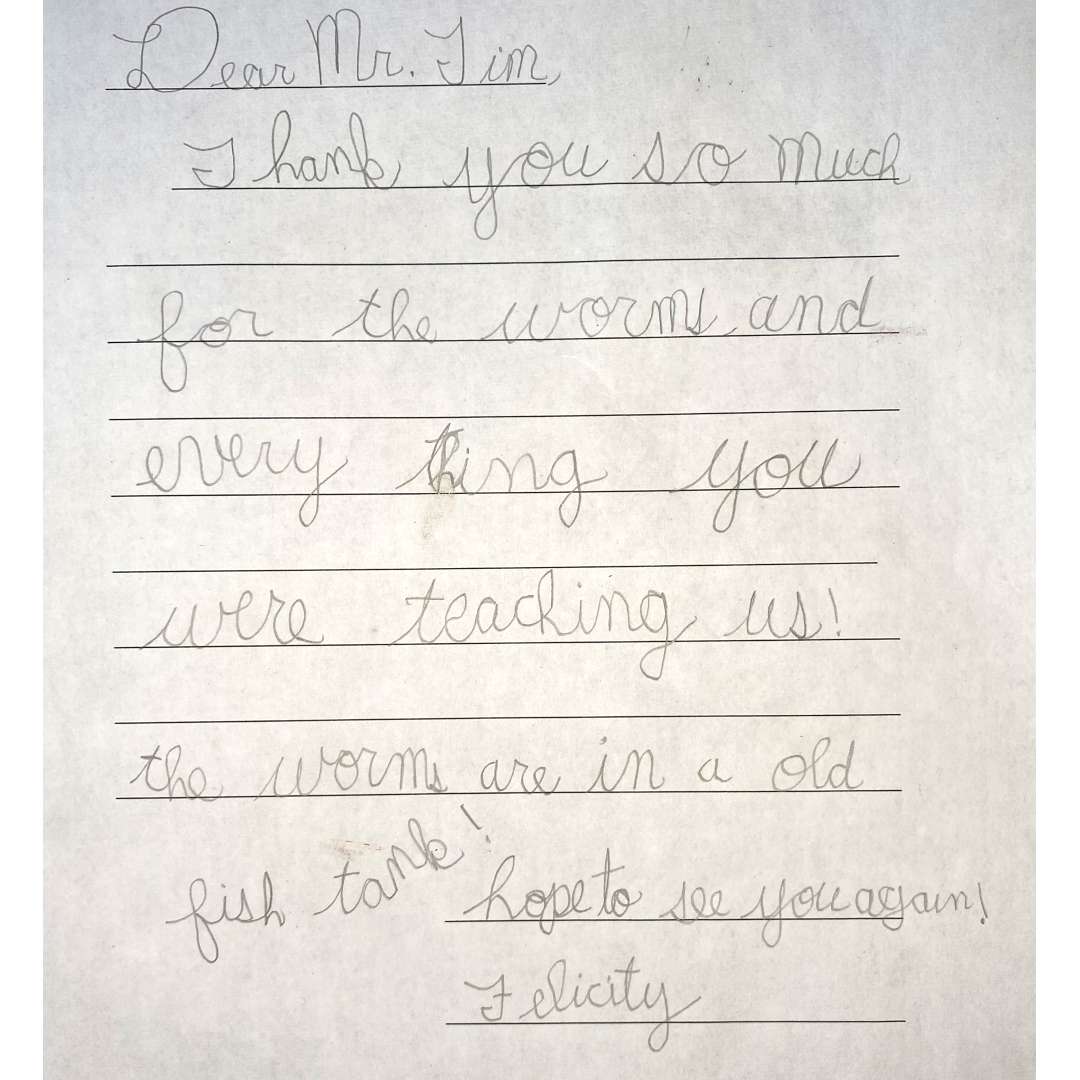 Dear Mr. Tim,
Thank you so much
for the worms and
every thing you
were teaching us!
the worms are in a old
fish tank!
hope to see you again!
Felicity